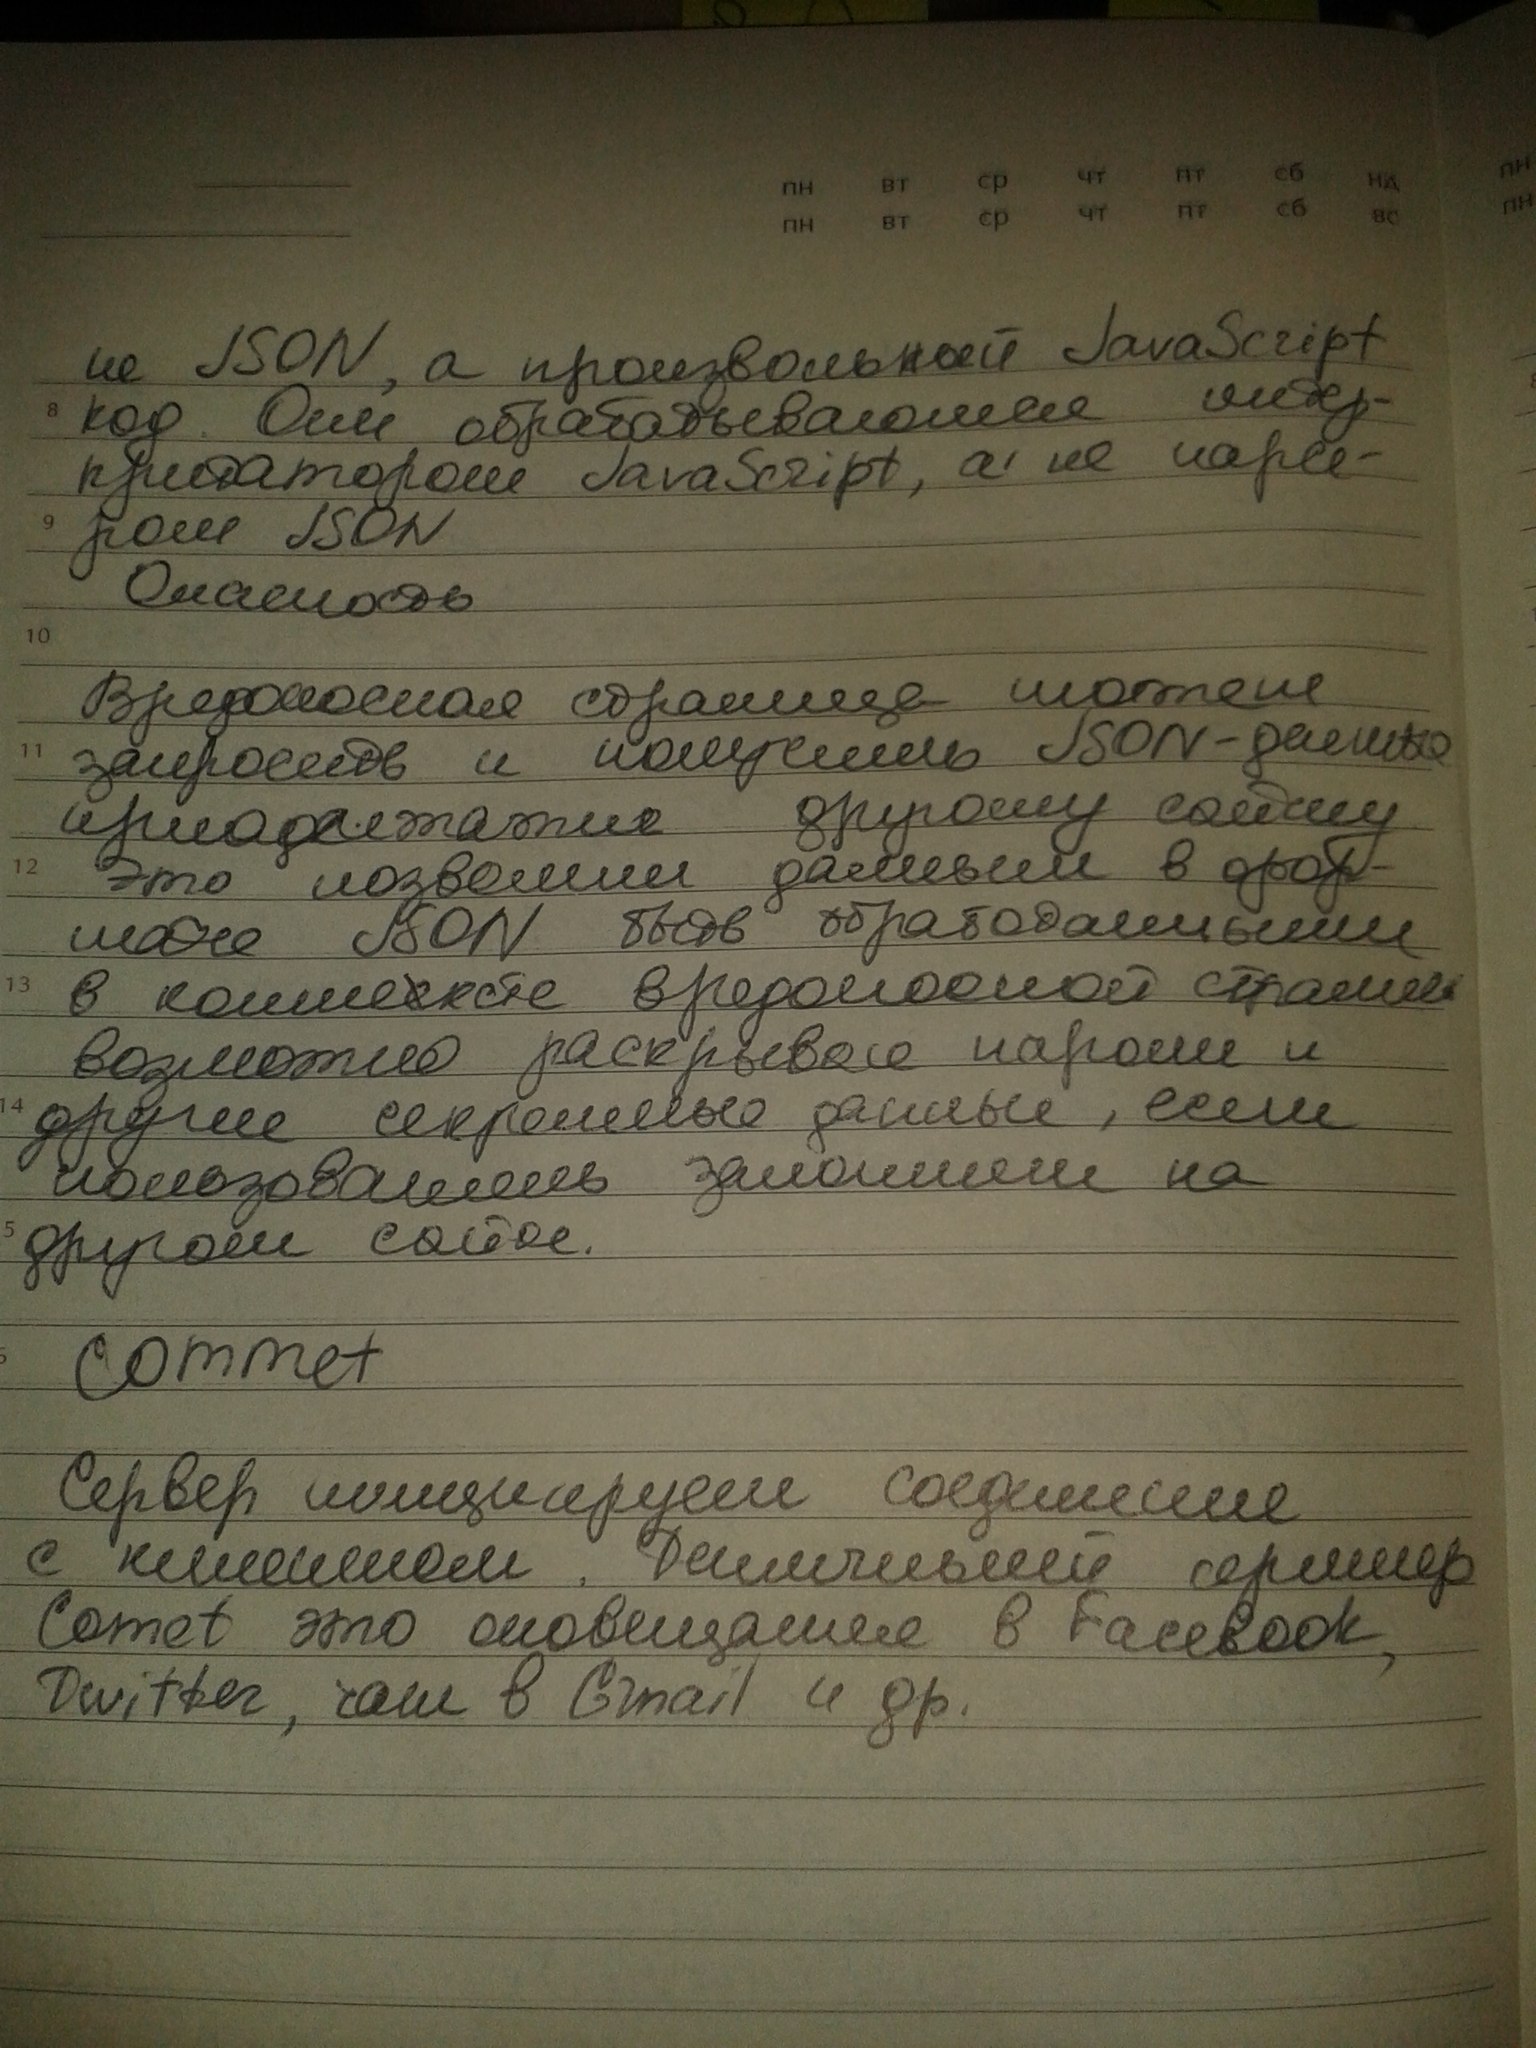 пн вт ср чт пт сб нд пн
пн вт ср чт пт сб вс пн
не JSON, а произвольный JavaScript
8 код. Они обрабатываются интер-
притатором JavaScript, а не парсе-
9 ром JSON
Опасность
10
Вредоносная страница может
11 запросить и получить JSON-данные
принадлежащие другому сайту
12 Это позволит данным в фор-
мате JSON быть обработанными
13 в контексте вредоносной страницы
возможно раскрывая пароли и
14 другие секретные данные, если
пользователь залогинен на
5 другом сайте.
6 Commet
Сервер инициирует соединение
с клиентом. Типичный пример
Comet это оповещание в Facebook,
Twitter, чат в Gmail и др.